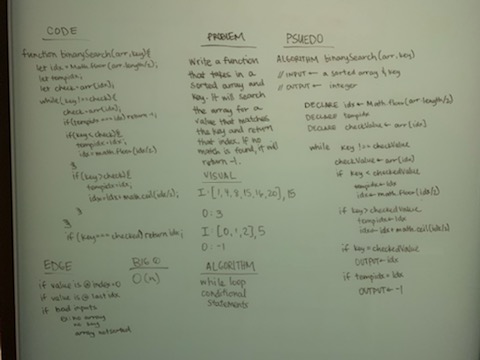 CODE
function binarySearch(arr, key){
let idx = Math.floor(arr.length/2);
let tempidx;
let check = arr[idx];
while(key !== check){
check = arr[idx];
if(tempidx === idx) return -1;
if(key < check){
tempidx = idx;
idx = math.floor(idx/2)
}
if(key > check){
tempidx = idx;
idx = idx + math.ceil(idx/2)
}
}
if(key === checked) return idx;
}
EDGE
if value is @ index = 0
if value is @ last idx
if bad inputs
no array
no key
array not sorted
BIG O
O(n)
PROBLEM
Write a function
that takes in a
sorted array and
key. It will search
the array for a
value that matches
the key and return
that index. If no
match is found, it will
return -1.
VISUAL
I: [1, 4, 8, 15, 16, 20], 15
O: 3
I: [0, 1, 2], 5
O: -1
ALGORITHM
while loop
conditional
statements
PSUEDO
ALGORITHM binarySearch(arr, key)
// INPUT ← a sorted array & key
// OUTPUT ← integer
DECLARE idx ← Math.floor(arr.length/2)
DECLARE tempidx
DECLARE checkValue ← arr[idx]
while key != checkValue
checkValue ← arr[idx]
if key < checkedValue
tempidx ← idx
idx ← math.floor(idx/2)
if key > checkedValue
tempidx ← idx
idx ← idx + math.ceil(idx/2)
if key = checkedValue
OUTPUT ← idx
if tempidx = idx
OUTPUT ← -1